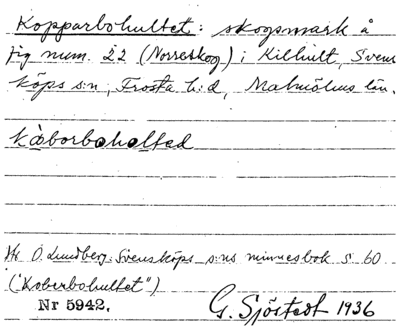 Kopparbohultet: skogsmark å
fig num. 22 (Norreskog) i Kilhult, Svens
köps s:n, Frosta h:d, Malmöhus län.
kåborbohølted
Hr O. Lundberg: Svensköps s:ns minnesbok s 60
("Koberbohultet")
Nr 5942.
G. Sjöstedt 1936